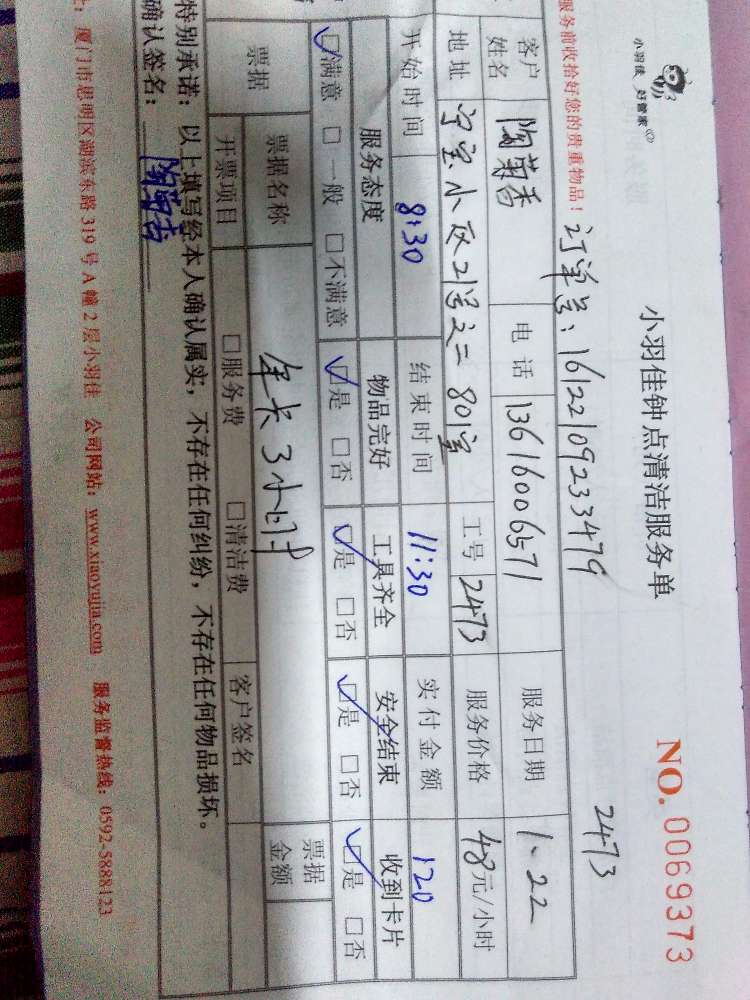 小羽佳 好管家
小羽佳钟点清洁服务单
NO. 0069373
2473
服务前收拾好您的贵重物品!
订单号:16122109233479
客户姓名 陶菊香 电话 13616006571 服务日期 1.22
地址 小区21号之二 801室 工号 2473 服务价格 48元/小时
开始时间 8:30 结束时间 11:30 实付金额 120
服务态度 物品完好 工具齐全 安全结束 收到卡片
☑满意 □一般 □不满意 ☑是 □否 ☑是 □否 ☑是 □否 ☑是 □否
票据 票据名称 年卡3小时 票据金额
开票项目 □服务费 □清洁费 客户签名
特别承诺:以上填写经本人确认属实,不存在任何纠纷,不存在任何物品损坏。
确认签名:陶菊香
址:厦门市思明区湖滨东路319号A幢2层小羽佳 公司网站:www.xiaoyujia.com 服务监督热线:0592-5888123